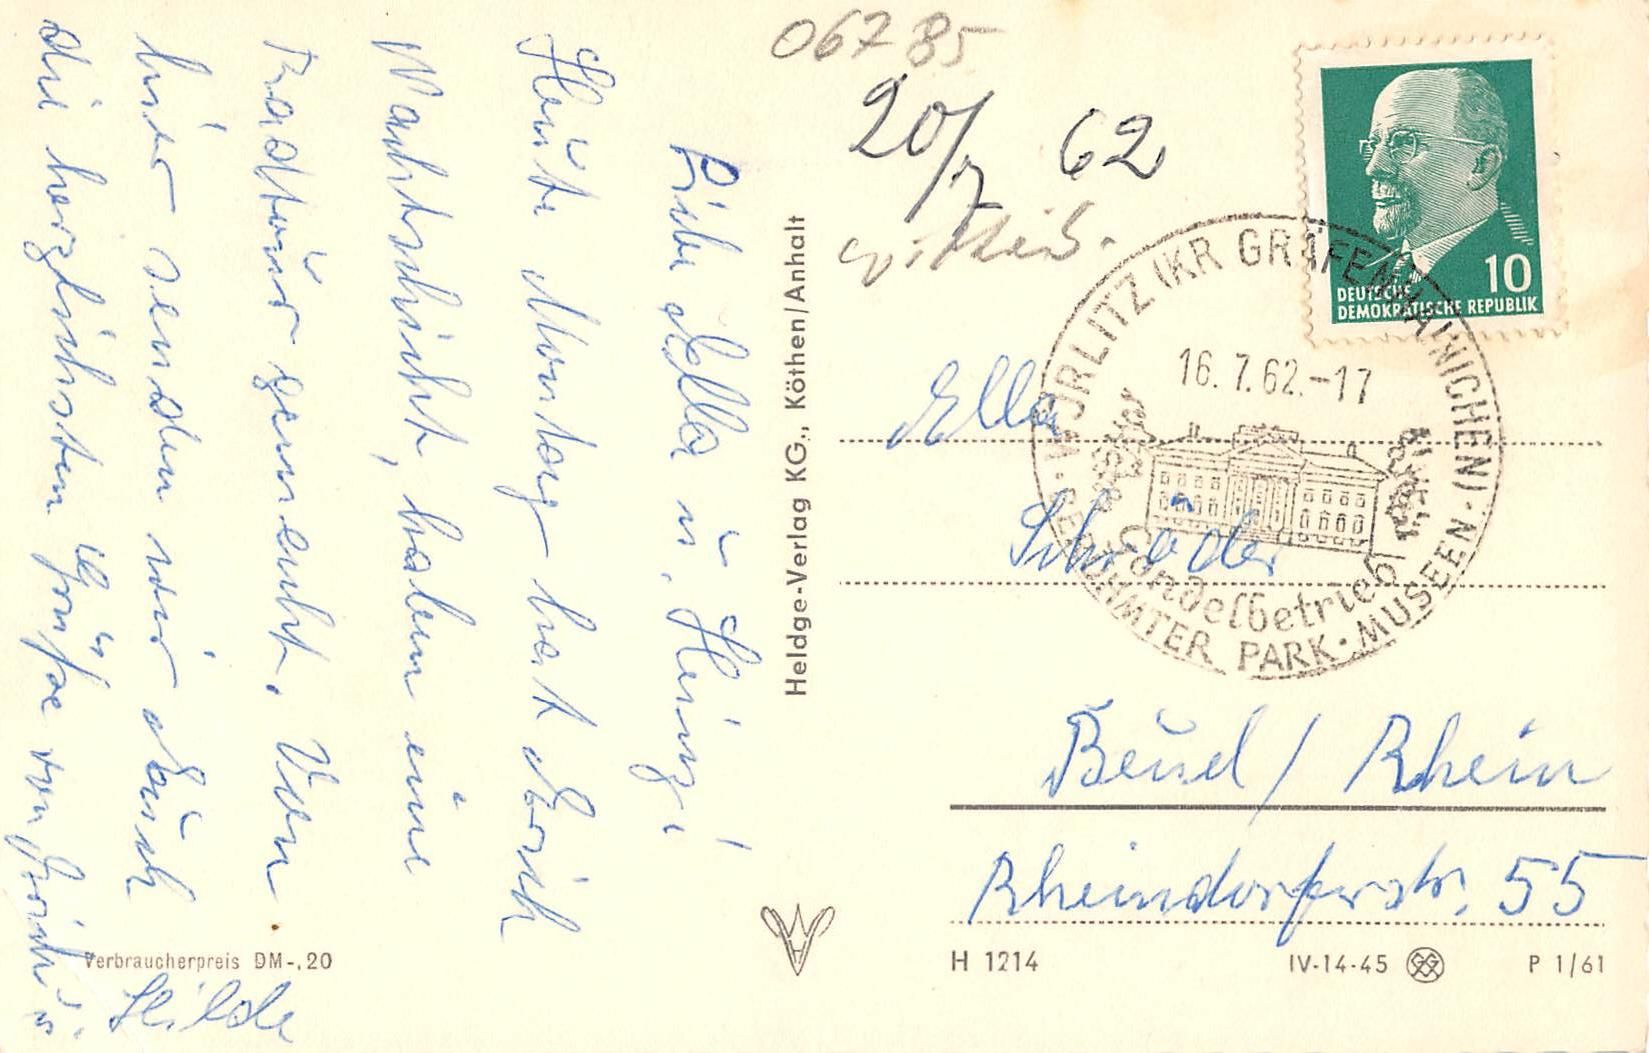 06785
20/7 62
Liebe Ella u. Heinz!
Heute Montag hat Erich
Nachtschicht, haben eine
Radtour gemacht. Von
hier senden wir Euch
die herzlichsten Grüße von Erich u.
Hilde
Verbraucherpreis DM -,20
Heldge-Verlag KG., Köthen/Anhalt
10
DEUTSCHE
DEMOKRATISCHE REPUBLIK
WÖRLITZ (KR GRÄFENHAINICHEN)
16.7.62.-17
BERÜHMTER PARK · MUSEEN
Ella
Schröder
Beuel / Rhein
Rheindorferstr. 55
H 1214
IV-14-45
P 1/61